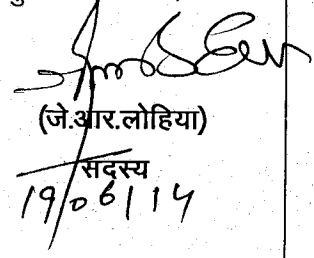 (जे.आर.लोहिया)
सदस्य
19/06/14